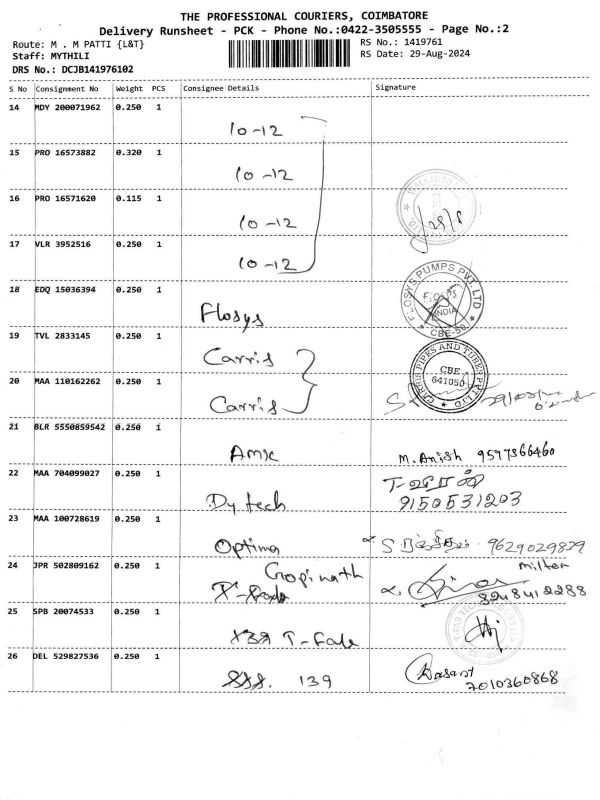 THE PROFESSIONAL COURIERS, COIMBATORE
Delivery Runsheet - PCK - Phone No.:0422-3505555 - Page No.:2
Route: M . M PATTI {L&T}
RS No.: 1419761
Staff: MYTHILI
RS Date: 29-Aug-2024
DRS No.: DCJB141976102
S No Consignment No Weight PCS Consignee Details Signature
14 MDY 200071962 0.250 1
10-12
15 PRO 16573882 0.320 1
10-12
16 PRO 16571620 0.115 1
10-12
17 VLR 3952516 0.250 1
10-12
18 EDQ 15036394 0.250 1
Flosys
FLOSYS PUMPS PVT. LTD
FLOSYS
INDIA
CBE-50.
19 TVL 2833145 0.250 1
Carris
CARRIS PIPES AND TUBES PVT LTD
CBE
641050
20 MAA 110162262 0.250 1
Carris
21 BLR 5550859542 0.250 1
M. Anish 9597366460
22 MAA 704099027 0.250 1
Dytech
9150531203
23 MAA 100728619 0.250 1
Optima
9629029839
24 JPR 502809162 0.250 1
Gopinath
25 SPB 20074533 0.250 1
26 DEL 529827536 0.250 1
139
7010360868